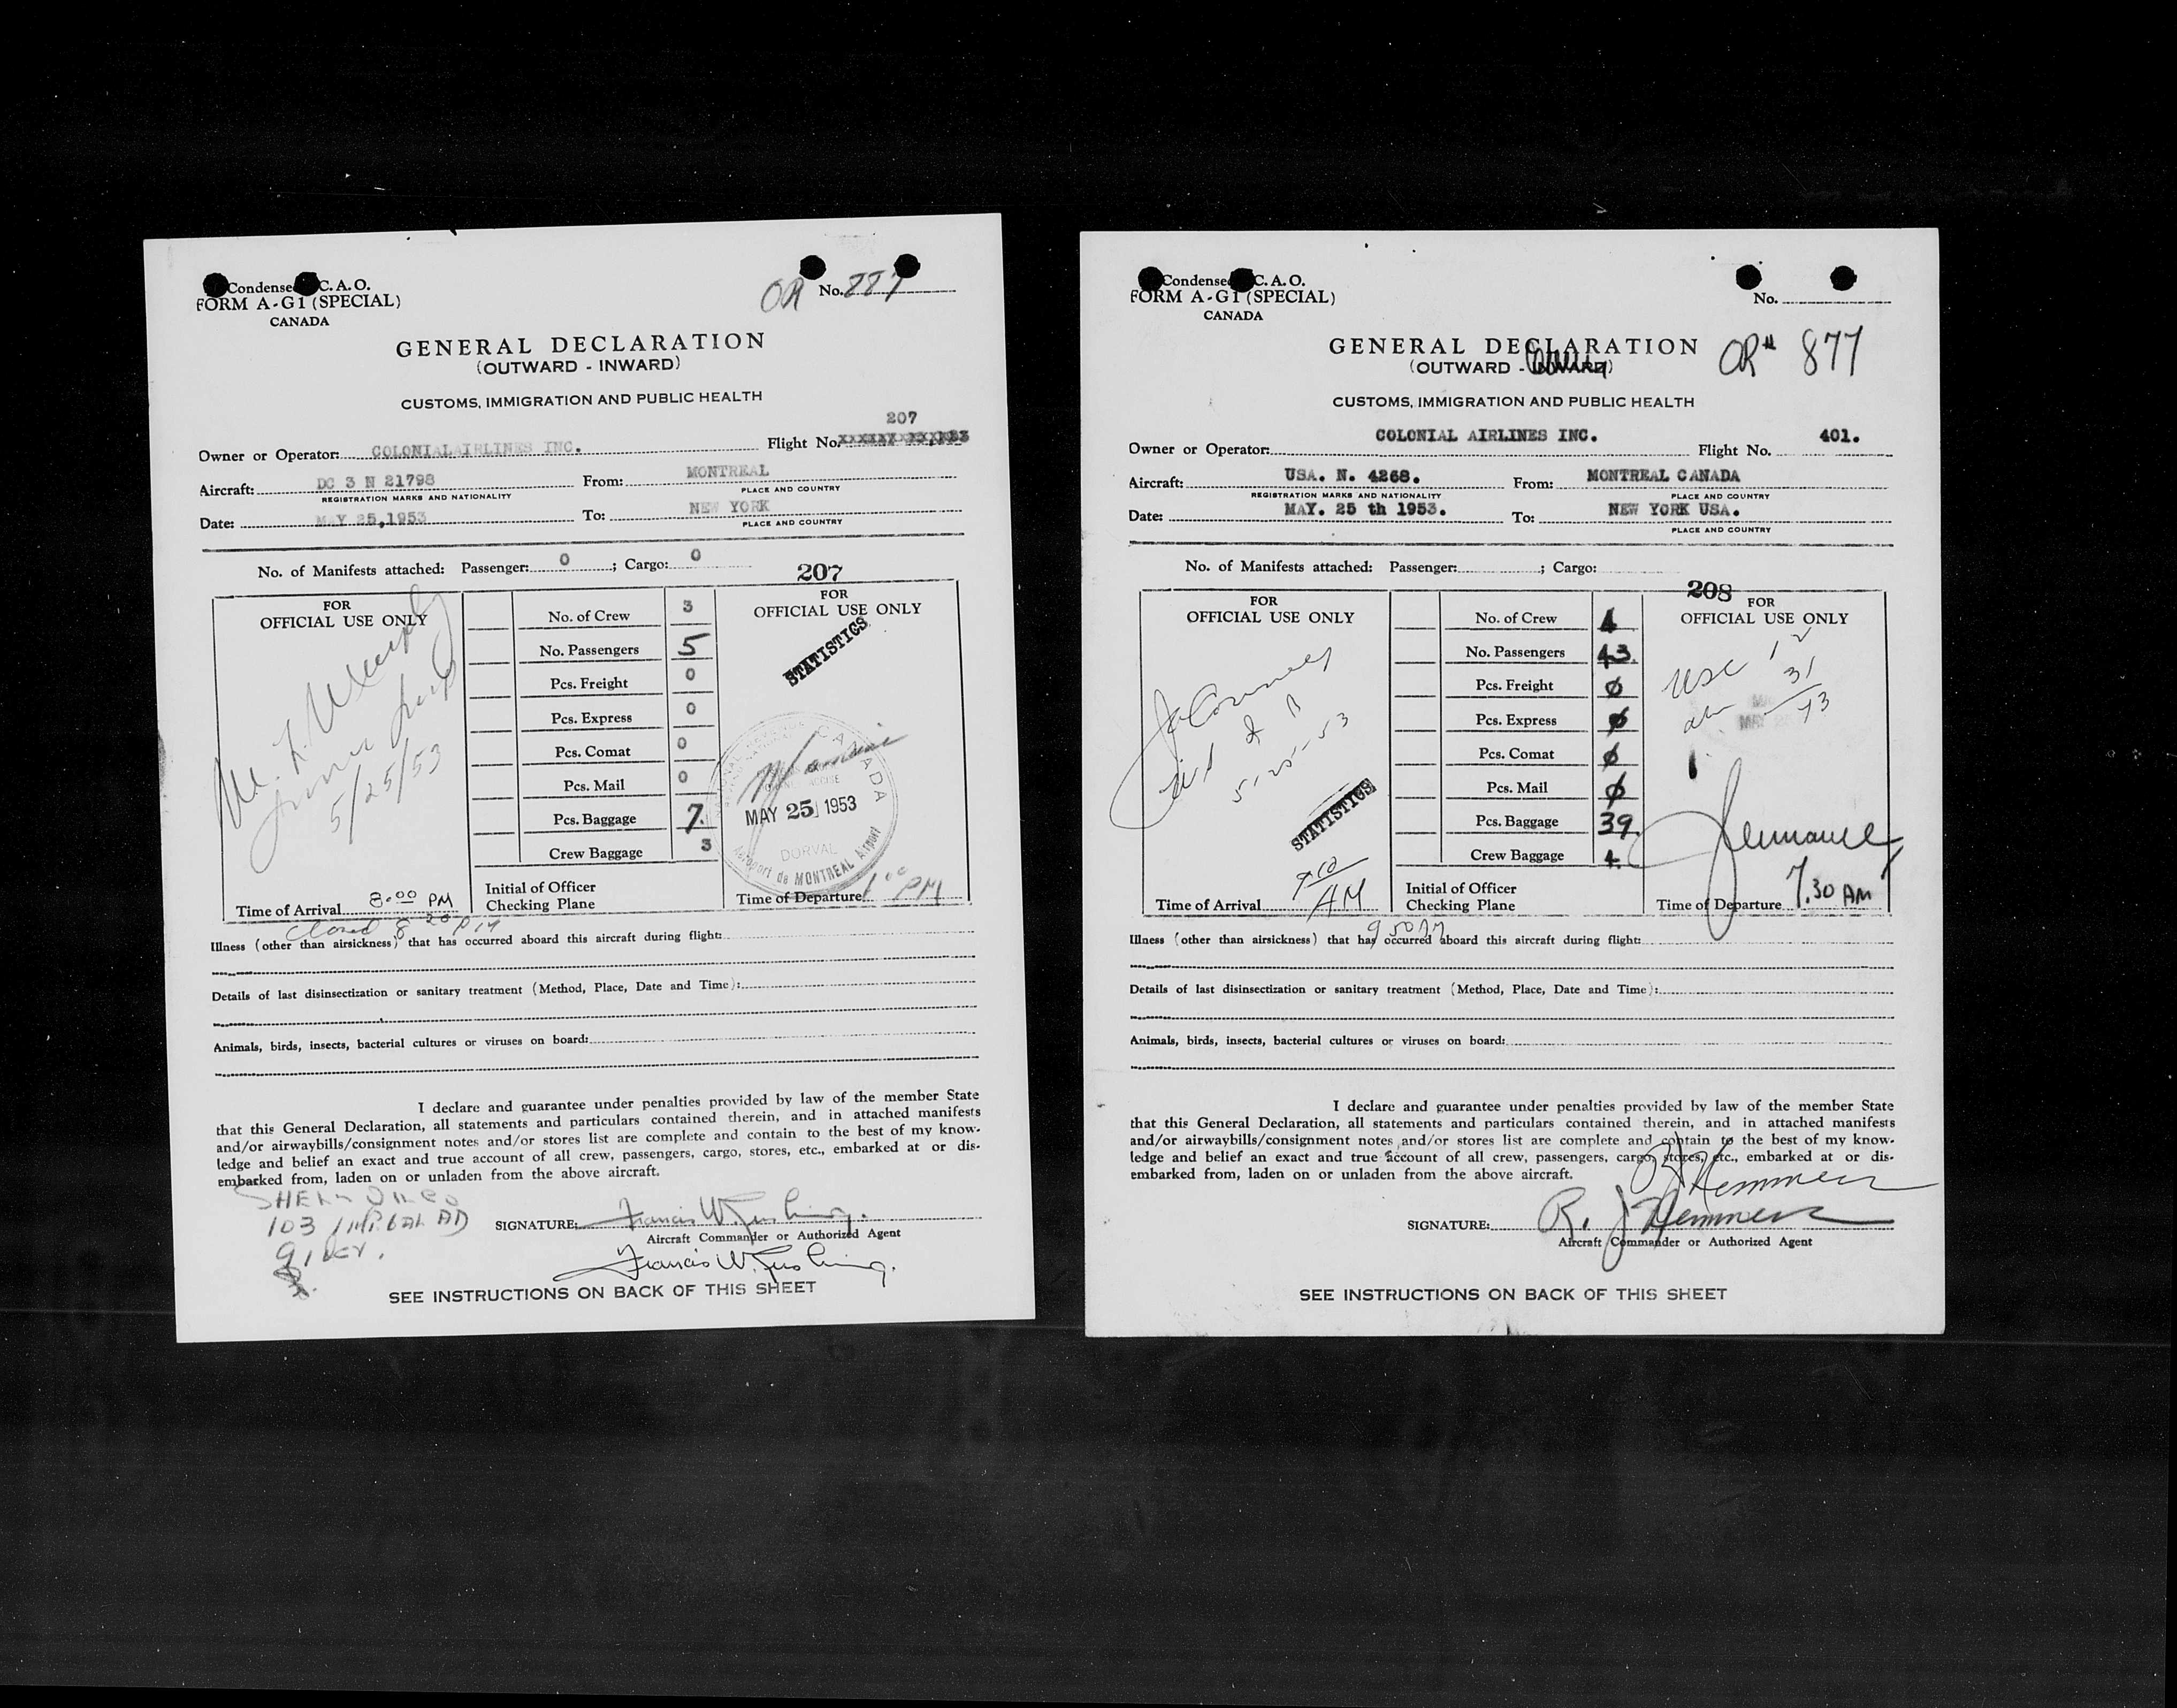 Condensed I.C.A.O.
FORM A-G1 (SPECIAL)
CANADA
OR No. 887
GENERAL DECLARATION
(OUTWARD - INWARD)
CUSTOMS, IMMIGRATION AND PUBLIC HEALTH
207
Owner or Operator: COLONIALAIRLINES INC. Flight No.
Aircraft: DC 3 N 21798 From: MONTREAL
REGISTRATION MARKS AND NATIONALITY PLACE AND COUNTRY
Date: MAY 25,1953 To: NEW YORK
PLACE AND COUNTRY
No. of Manifests attached: Passenger: 0 ; Cargo: 0
207
FOR
OFFICIAL USE ONLY
5/25/53
Time of Arrival 8.00 PM
Closed 8 20 PM
No. of Crew 3
No. Passengers 5
Pcs. Freight 0
Pcs. Express 0
Pcs. Comat 0
Pcs. Mail 0
Pcs. Baggage 7.
Crew Baggage 3
Initial of Officer
Checking Plane
FOR
OFFICIAL USE ONLY
STATISTICS
CANADA
MAY 25 1953
DORVAL
Aéroport de MONTREAL Airport
Time of Departure 1 00 PM
Illness (other than airsickness) that has occurred aboard this aircraft during flight:
Details of last disinsectization or sanitary treatment (Method, Place, Date and Time):
Animals, birds, insects, bacterial cultures or viruses on board:
I declare and guarantee under penalties provided by law of the member State
that this General Declaration, all statements and particulars contained therein, and in attached manifests
and/or airwaybills/consignment notes and/or stores list are complete and contain to the best of my know-
ledge and belief an exact and true account of all crew, passengers, cargo, stores, etc., embarked at or dis-
embarked from, laden on or unladen from the above aircraft.
103
SIGNATURE: Francis W.
Aircraft Commander or Authorized Agent
Francis W.
SEE INSTRUCTIONS ON BACK OF THIS SHEET
Condensed I.C.A.O.
FORM A-G1 (SPECIAL)
CANADA
No.
GENERAL DECLARATION
(OUTWARD - INWARD)
OR# 877
CUSTOMS, IMMIGRATION AND PUBLIC HEALTH
Owner or Operator: COLONIAL AIRLINES INC. Flight No. 401.
Aircraft: USA. N. 4268. From: MONTREAL CANADA
REGISTRATION MARKS AND NATIONALITY PLACE AND COUNTRY
Date: MAY. 25 th 1953. To: NEW YORK USA.
PLACE AND COUNTRY
No. of Manifests attached: Passenger: ; Cargo:
208
FOR
OFFICIAL USE ONLY
5-25-53
STATISTICS
Time of Arrival AM
9 50 AM
No. of Crew 4
No. Passengers 43.
Pcs. Freight 0
Pcs. Express 0
Pcs. Comat 0
Pcs. Mail 0
Pcs. Baggage 39.
Crew Baggage 4.
Initial of Officer
Checking Plane
FOR
OFFICIAL USE ONLY
USC 12
31
43
Time of Departure 7.30 AM
Illness (other than airsickness) that has occurred aboard this aircraft during flight:
Details of last disinsectization or sanitary treatment (Method, Place, Date and Time):
Animals, birds, insects, bacterial cultures or viruses on board:
I declare and guarantee under penalties provided by law of the member State
that this General Declaration, all statements and particulars contained therein, and in attached manifests
and/or airwaybills/consignment notes and/or stores list are complete and contain to the best of my know-
ledge and belief an exact and true account of all crew, passengers, cargo, stores, etc., embarked at or dis-
embarked from, laden on or unladen from the above aircraft.
SIGNATURE: R. J.
Aircraft Commander or Authorized Agent
SEE INSTRUCTIONS ON BACK OF THIS SHEET